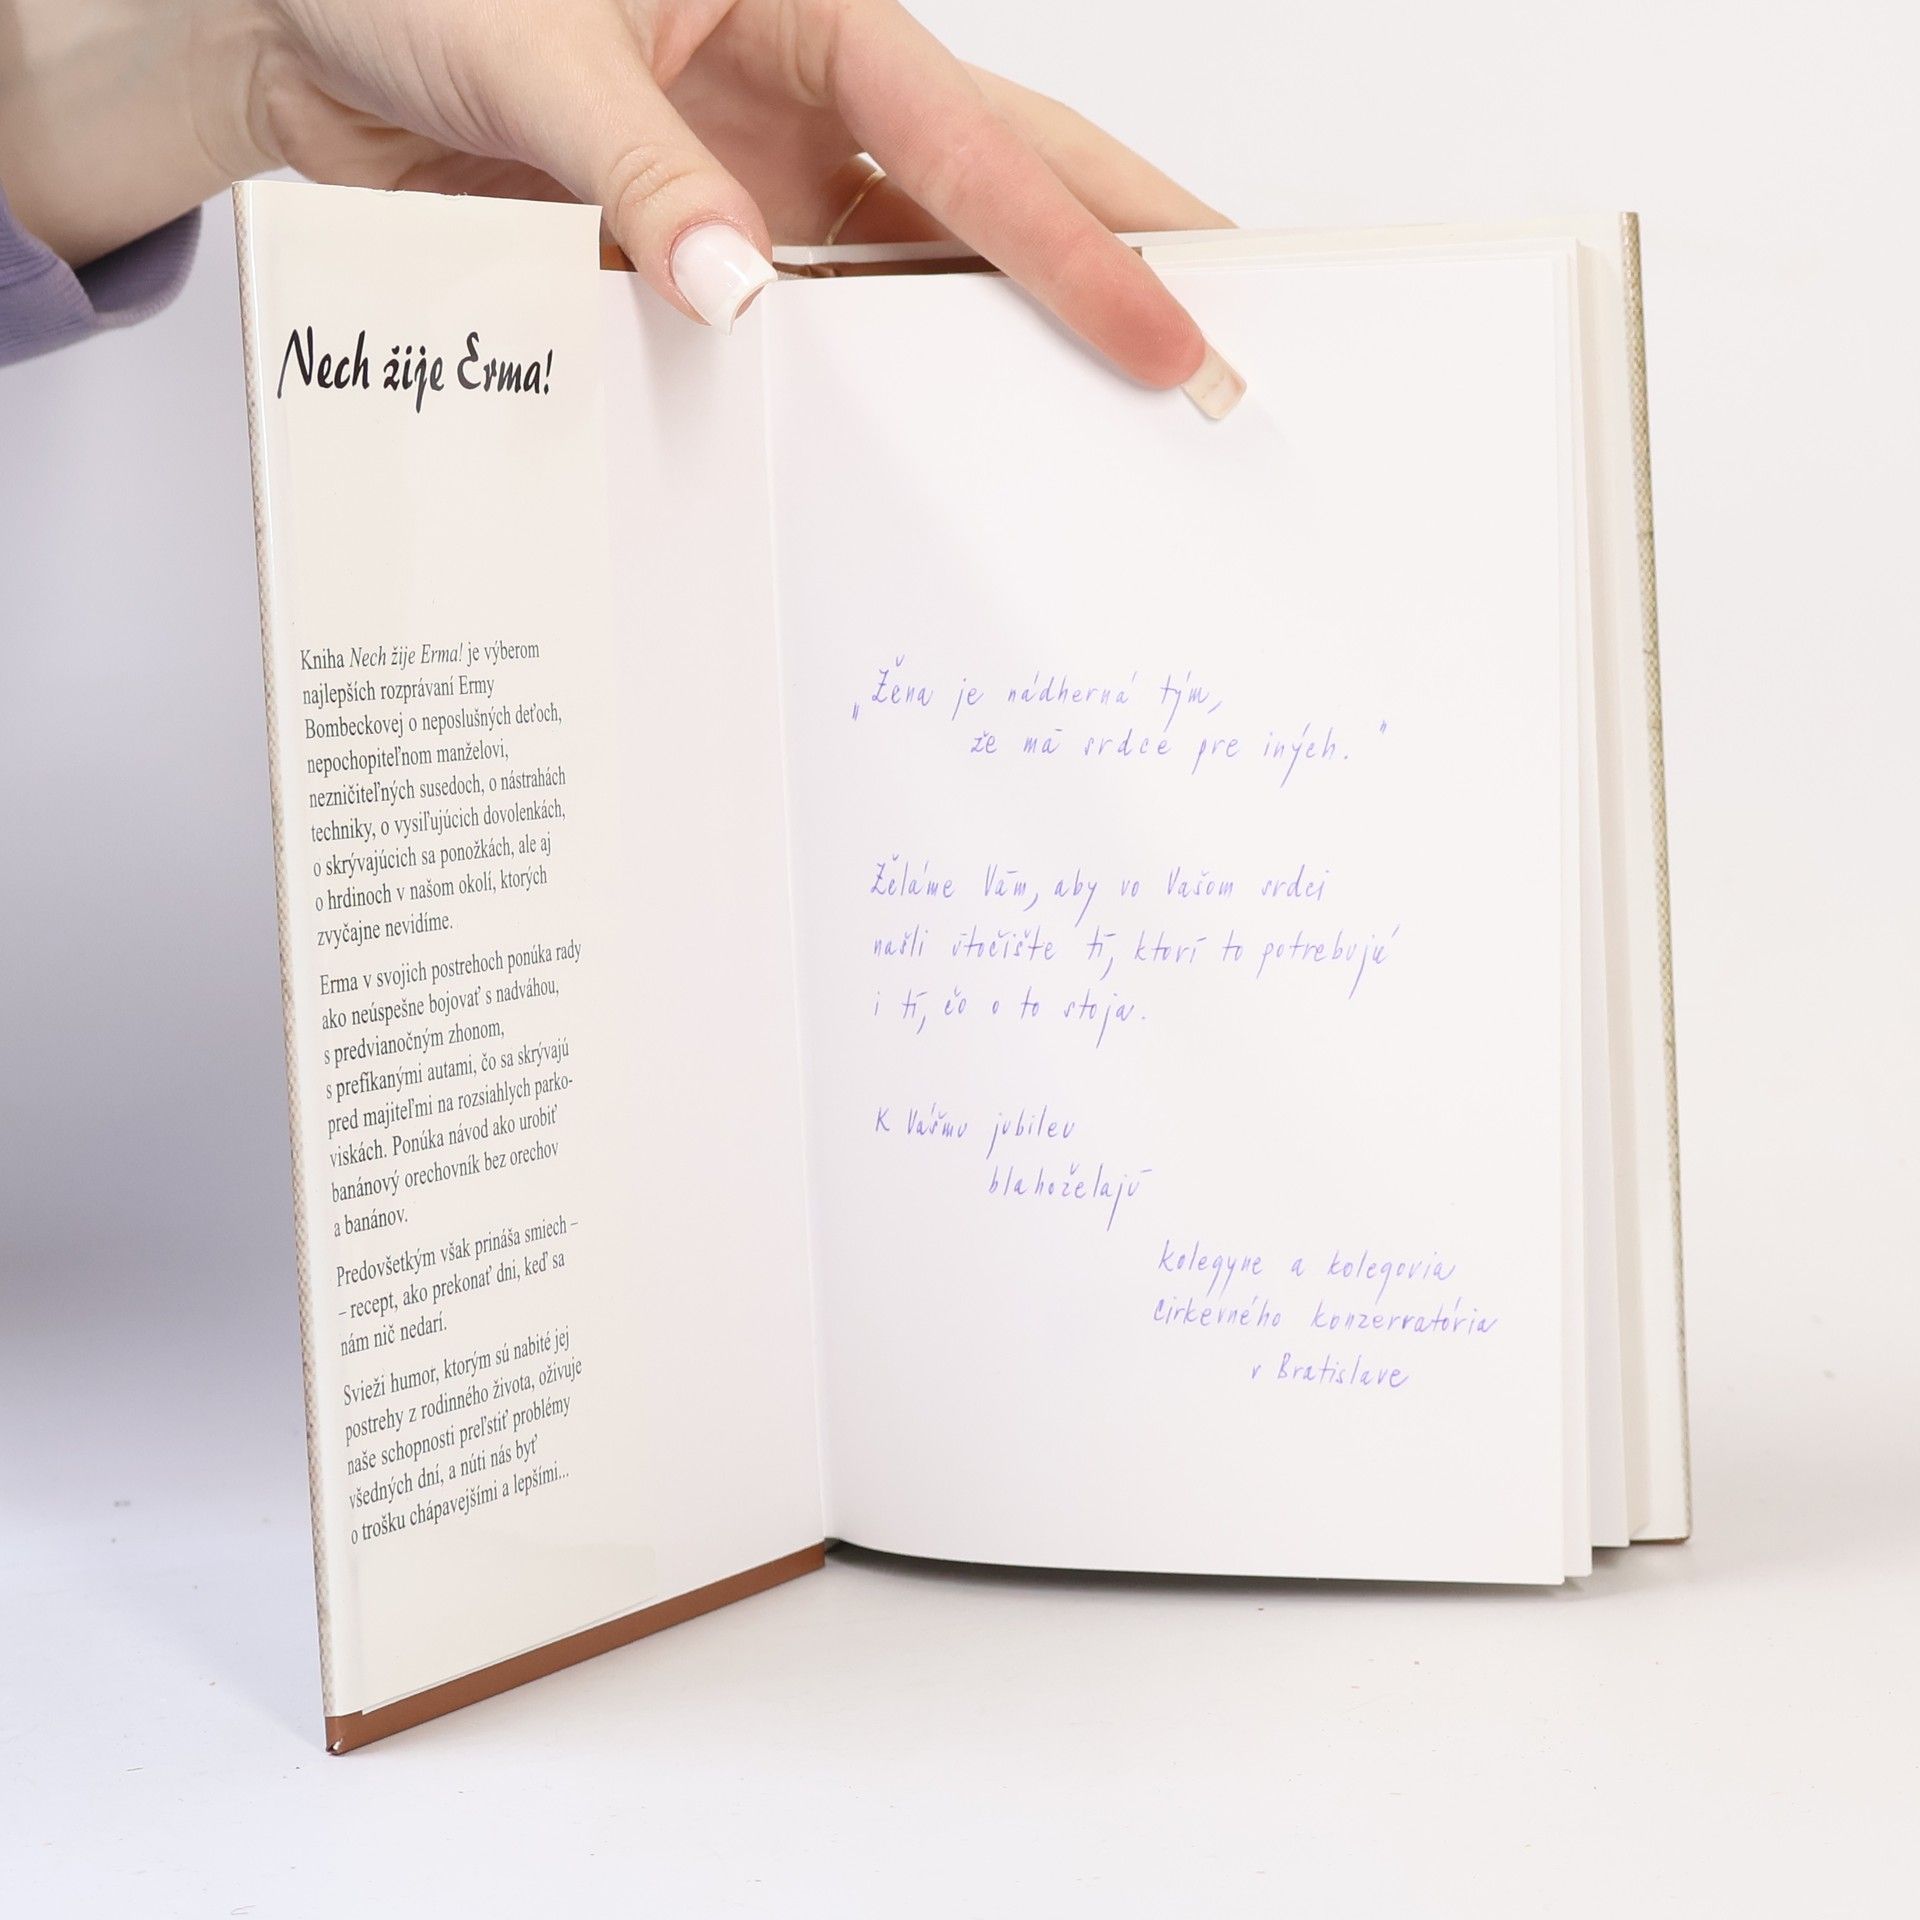 Nech žije Erma!
Kniha Nech žije Erma! je výberom
najlepších rozprávaní Ermy
Bombeckovej o neposlušných deťoch,
nepochopiteľnom manželovi,
nezničiteľných susedoch, o nástrahách
techniky, o vysiľujúcich dovolenkách,
o skrývajúcich sa ponožkách, ale aj
o hrdinoch v našom okolí, ktorých
zvyčajne nevidíme.
Erma v svojich postrehoch ponúka rady
ako neúspešne bojovať s nadváhou,
s predvianočným zhonom,
s prefíkanými autami, čo sa skrývajú
pred majiteľmi na rozsiahlych parko-
viskách. Ponúka návod ako urobiť
banánový orechovník bez orechov
a banánov.
Predovšetkým však prináša smiech –
– recept, ako prekonať dni, keď sa
nám nič nedarí.
Svieži humor, ktorým sú nabité jej
postrehy z rodinného života, oživuje
naše schopnosti preľstiť problémy
všedných dní, a núti nás byť
o trošku chápavejšími a lepšími...
„Žena je nádherná tým,
že má srdce pre iných."
Želáme Vám, aby vo Vašom srdci
našli útočište tí, ktorí to potrebujú
i tí, čo o to stoja.
K Vášmu jubileu
blahoželajú
kolegyne a kolegovia
Cirkevného konzervatória
v Bratislave